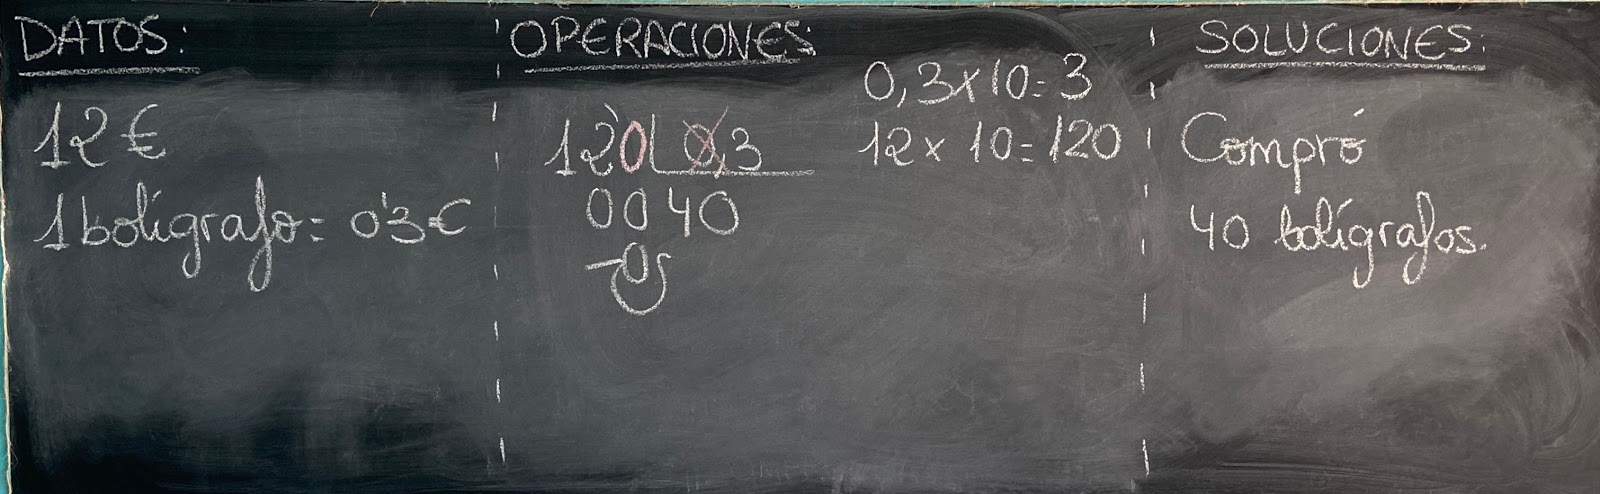 DATOS:
12 €
1 bolígrafo = 0'3 €
OPERACIONES:
120 0,3
0040
0
0,3 x 10 = 3
12 x 10 = 120
SOLUCIONES:
Compró
40 bolígrafos.